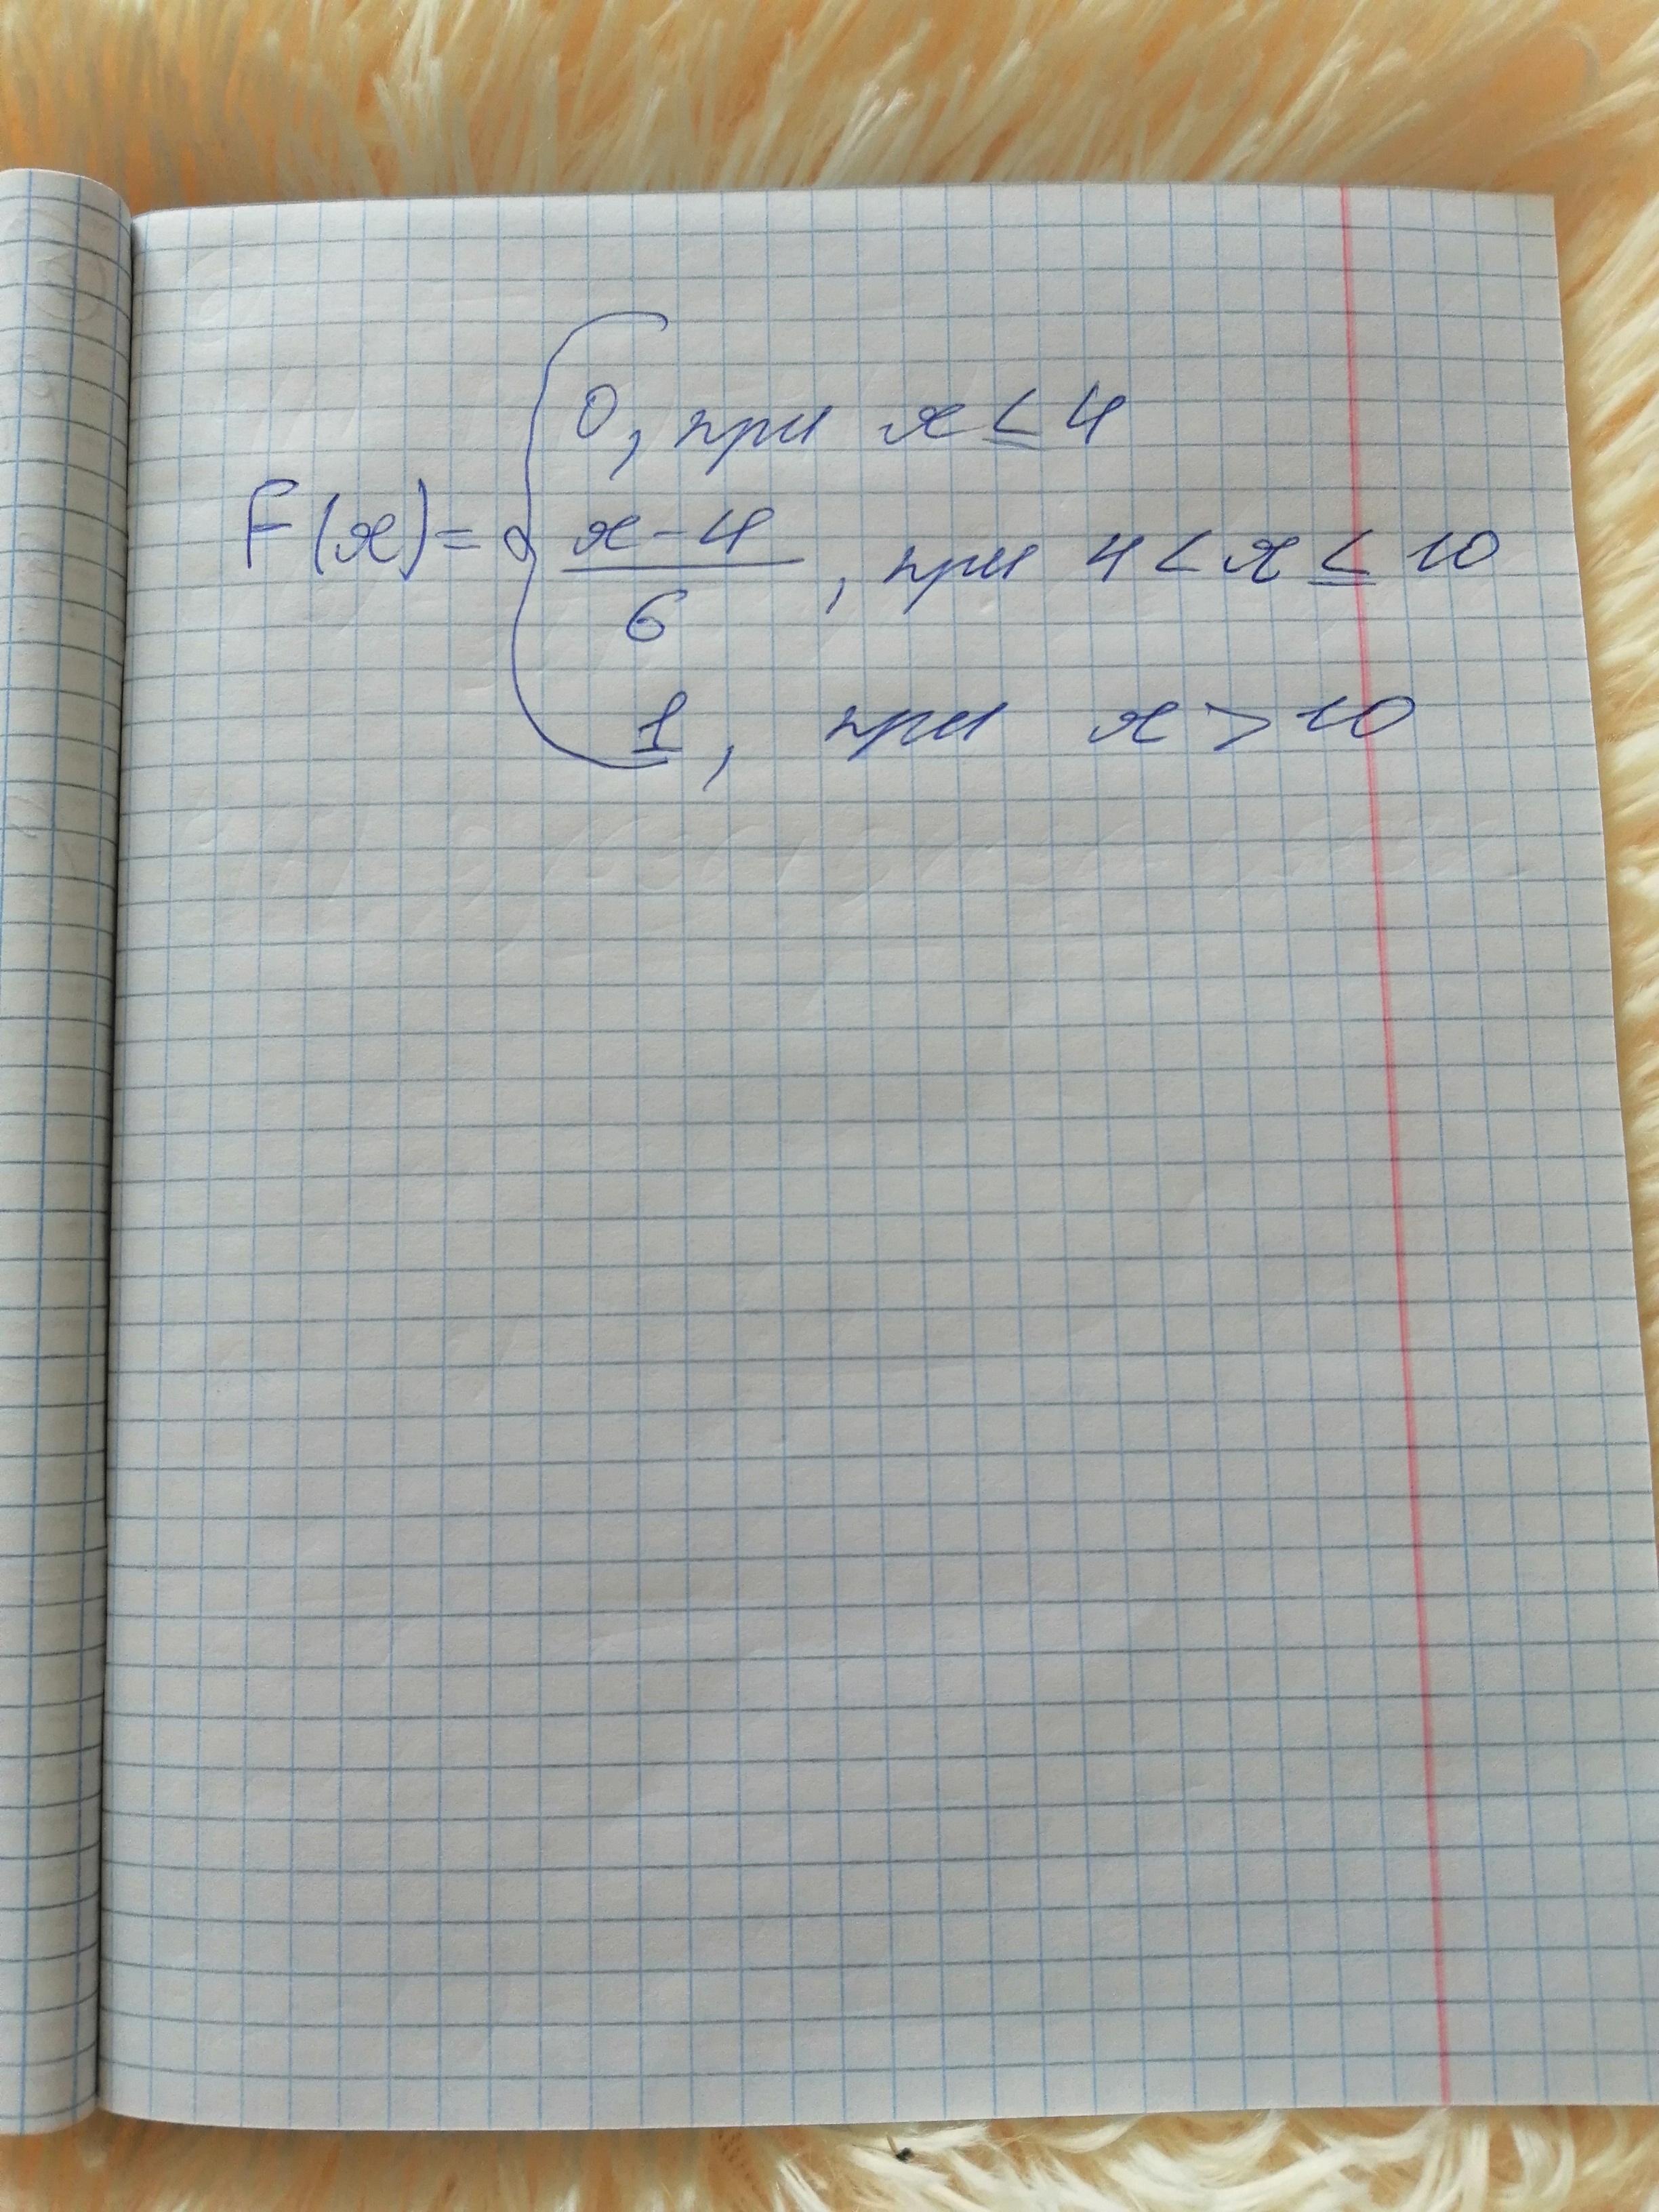 0, при x ≤ 4
F(x) = { x-4/6, при 4 < x ≤ 10
1, при x > 10